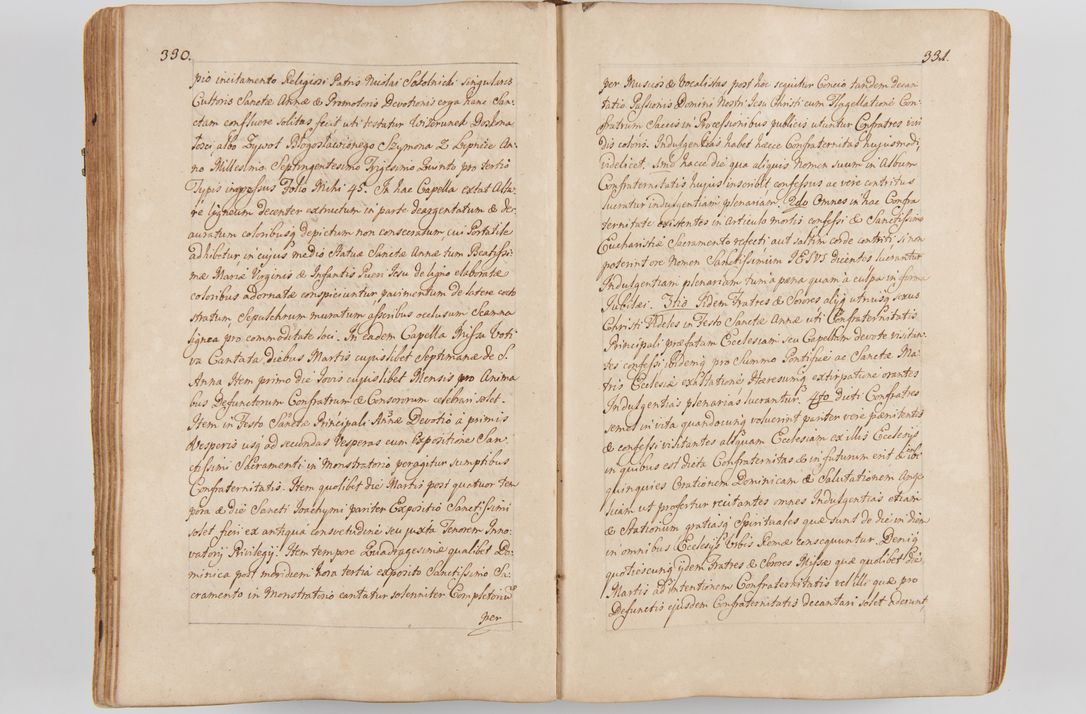 330.
pio incitamento Religiosi Patris Nicolai Sokolnicki singularis
Cultoris Sanctæ Annæ & Promotoris Devotionis erga hanc San-
ctam confluere solitas fecit uti testatur Wizerunek Doskona-
łosci albo Zywot Błogosławionego Szymona Z Lipnice An-
no Millesimo Septingentesimo Trigesimo Quinto pro tertio
Typis ingressus Folio Mihi 45. In hac Capella extat Alta-
re ligneum decenter extructum in parte deargentatum & de-
auratum coloribusq depictum non consecratum, cui Portatile
adhibetur in cujus medio Statuæ Sanctæ Annæ tum Beatissi-
mæ Mariæ Virginis & Infantis Pueri Jesu de ligno elaboratæ
coloribus adornatæ conspiciuntur pavimentum de latere cocto
stratum, Sepulchrum muratum asseribus occlusum Scamna
lignea pro commoditate loci. In eadem Capella Missa Voti
va Cantata diebus Martis cujuslibet Septimanæ de S.
Anna Item primo die Jovis cujuslibet Mensis pro Anima
bus Defunctorum Confratrum & Consororum celebrari solet.
Item in Festo Sanctæ Principali Annæ Devotio à primis
Vesperis usq ad secundas Vesperas cum Expositione San-
ctissimi Sacramenti in Monstratorio peragitur sumptibus
Confraternitatis. Item quolibet die Martis post quatuor tem
pora & die Sancti Joachymi pariter Expositio Sanctissimi
solet fieri ex antiqua consuetudine seu juxta Tenorem Inno-
vatorij Privilegij. Item tempre Quadragesimæ qualibet Do-
minica post meridiem hora tertia exposito Sanctissimo Sa-
cramento in Monstratorio cantatur solenniter Completorium
per
331.
per Musicos & Vocalistas post hoc sequitur Concio tandem decan
tatio Passionis Domini Nostri Jesu Christi cum Flagellatione Con-
fratrum Saccis in Processionibus publicis utuntur Confratres viri
dis coloris. Indulgentias habet hæcce Confraternitas hujusmodi,
videlicet. Imo hacce die qua aliquis Nomen suum in Album
Confraternitatis hujus inscribit confessus ac vere contritus
lucratur indulgentiam plenariam. 2do Omnes in hac Confra
ternitate existentes in Articulo mortis confessi & Sanctissimo
Eucharistiæ Sacramento refecti aut saltim corde contriti, si non
poterint ore Nomen Sanctissimum JESUS dicentes lucrantur
Indulgentiam plenariam tum à pæna quam à culpa in forma
Jubilæi. 3tio Iidem Fratres & Sorores aliiq utriusq sexus
Christi Fideles in Festo Sanctæ Annæ uti Confraternitatis
Principali præfatam Ecclesiam seu Capellam devote visitan-
tes confessi ibidemq pro Summo Pontifice ac Sanctæ Ma-
tris Ecclesiæ exaltatione Hæresumq extirpatione orantes
Indulgentias plenarias lucrantur. 4to dicti Confratres
semel in vita quandocunq voluerint pariter vere pænitentes
& confessi visitantes aliquam Ecclesiam ex illis Ecclesijs
in quibus est dicta Confraternitas & in futurum erit & ibi
quinquies Orationem Dominicam & Salutationem Ange
licam ut profertur recitantes omnes Indulgentias etiam
& Stationum gratiasq Spirituales quæ sunt de die in diem
in omnibus Ecclesijs Urbis Romæ consequuntur. Deniq
quotiescunq ijdem Fratres & Sorores Missæ quæ quolibet die
Martis ad intentionem Confraternitatis vel illi quæ pro
Defunctis ejusdem Confraternitatis decantari solet aderunt,